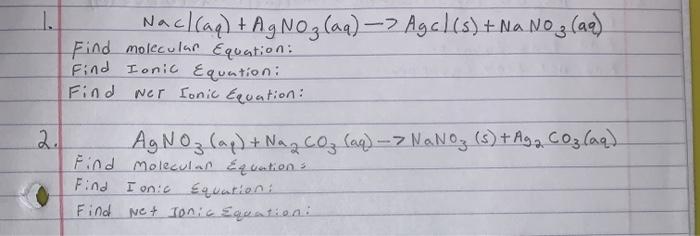 1. Nacl(aq) + AgNO3(aq) -> Agcl(s) + NaNO3(aq)
Find molecular Equation:
Find Ionic Equation:
Find Net Ionic Equation:
2. AgNO3(aq) + Na2CO3(aq) -> NaNO3(s) + Ag2CO3(aq)
Find Molecular Equation:
Find Ionic Equation:
Find Net Ionic Equation: